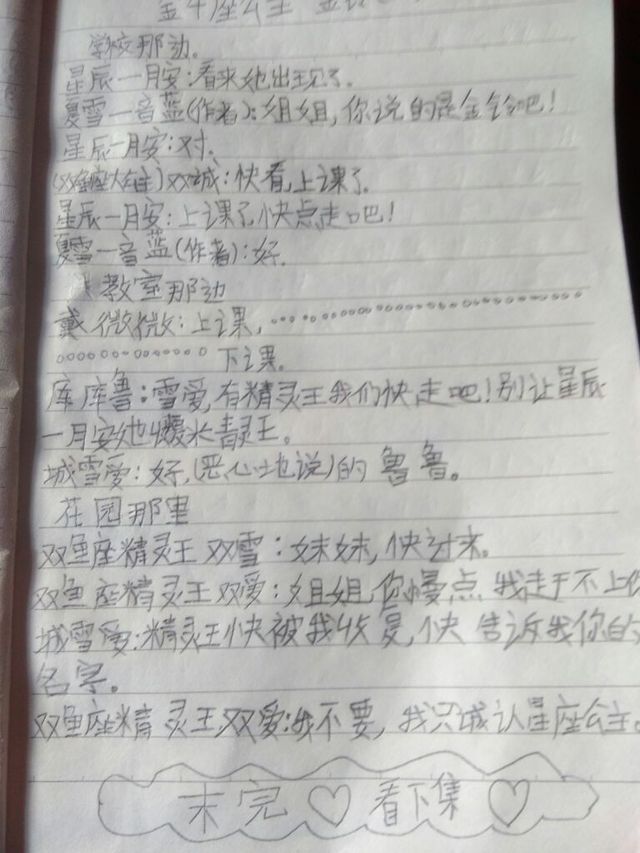 金牛座公主 金
学校那边。
星辰一月安:看来她出现了。
夏雪一音蓝(作者):姐姐,你说的是金铃吧!
星辰一月安:对。
(双鱼座公主)双城:快看,上课了。
星辰一月安:上课了,快点走吧!
夏雪一音蓝(作者):好。
教室那边
戴微微:上课,……………………………
………………下课。
库库鲁:雪爱,有精灵王我们快走吧!别让星辰
一月安她爆米青灵王。
城雪爱:好,(恶心地说)的 鲁鲁。
花园那里
双鱼座精灵王双雪:妹妹,快过来。
双鱼座精灵王双爱:姐姐,你慢点 我走于不上
城雪爱:精灵王快被我收复,快告诉我你的
名字。
双鱼座精灵王双爱:我不要,我只城认星座公主。
末完♡看下集♡